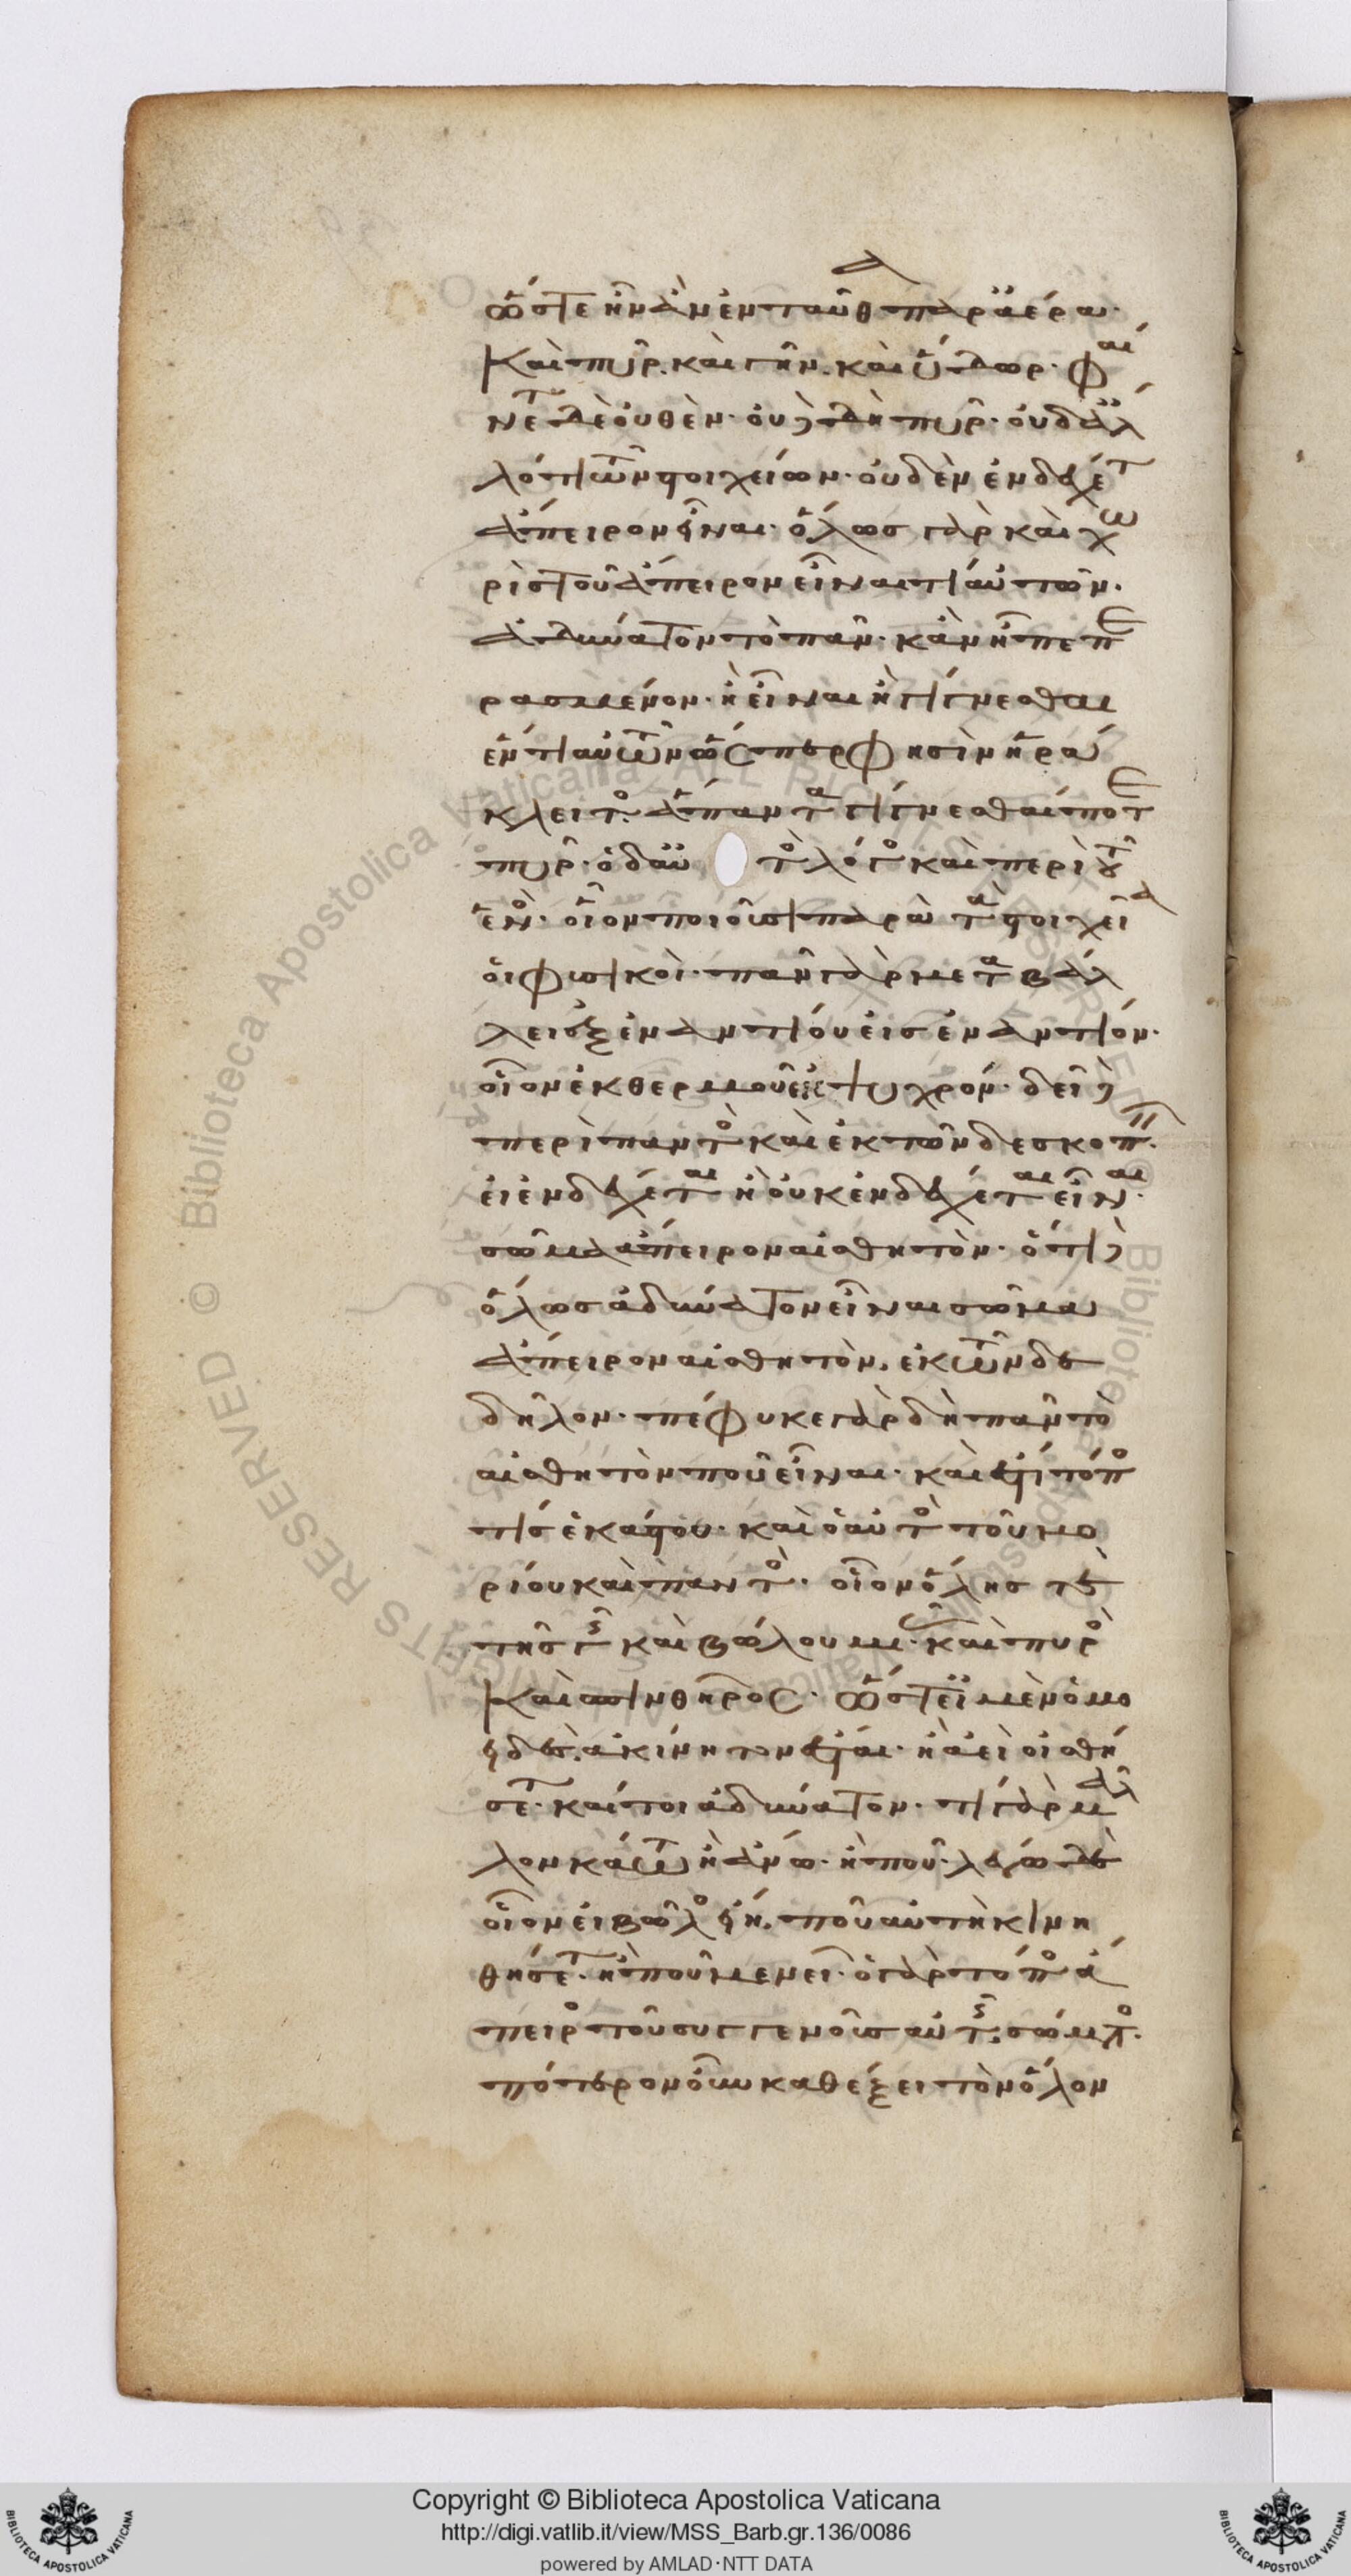 ὥστε ἦν ἂν ἐνταῦθα παρὰ ἀέρα·
καὶ πῦρ. καὶ γῆν. καὶ ὕδωρ. φαί
νεται δὲ οὐθὲν· οὐδὲ δὴ πῦρ· οὐδ' ἄλ
λό τι τῶν στοιχείων· οὐδὲν ἐνδέχεται
ἄπειρον εἶναι· ὅλως γὰρ καὶ χω
ρὶς τοῦ ἄπειρον εἶναί τι αὐτῶν.
ἀδύνατον τὸ πᾶν· κἂν ἦ πεπε
ρασμένον· ἢ εἶναι ἢ γίγνεσθαι
ἕν τι αὐτῶν ὥσπερ φησὶν ἡρά
κλειτος. ἅπαντα γίγνεσθαί ποτε
πῦρ· ὁ δ' αὐτὸς λόγος καὶ περὶ τοῦ
ἑνός· οἷον ποιοῦσι παρὰ τὰ στοιχεῖα
οἱ φυσικοὶ· πᾶν γὰρ μεταβάλ
λει ἐξ ἐναντίου εἰς ἐναντίον·
οἷον ἐκ θερμοῦ εἰς ψυχρόν· δεῖ δὲ
περὶ παντὸς καὶ ἐκ τῶνδε σκοπεῖν.
εἰ ἐνδέχεται ἢ οὐκ ἐνδέχεται εἶναι·
σῶμα ἄπειρον αἰσθητὸν· ὅτι δὲ
ὅλως ἀδύνατον εἶναι σῶμα
ἄπειρον αἰσθητὸν. ἐκ τῶνδε
δῆλον· πέφυκε γὰρ δὴ πᾶν τὸ
αἰσθητὸν ποῦ εἶναι· καὶ ἔστι τόπος
τίς ἑκάστου· καὶ ὁ αὐτὸς τοῦ μο
ρίου καὶ παντὸς· οἷον ὅλης τε
τῆς γῆς καὶ βώλου μιᾶς· καὶ πυρὸς
καὶ σπινθῆρος· ὥστε εἰ μὲν ὁμο
ειδὲς. ἀκίνητον ἔσται· ἢ ἀεὶ οἰσθή
σεται· καίτοι ἀδύνατον· τί γὰρ μᾶλ
λον κάτω ἢ ἄνω· ἢ ποῦ· λέγω δὲ
οἷον εἰ βῶλος εἴη. ποῦ αὐτὴ κινη
θήσεται· ἢ ποῦ μενεῖ· ὁ γὰρ τόπος ἄ
πειρος τοῦ συγγενοῦς αὐτῆς σώματος.
πότερον οὖν καθέξει τὸν ὅλον